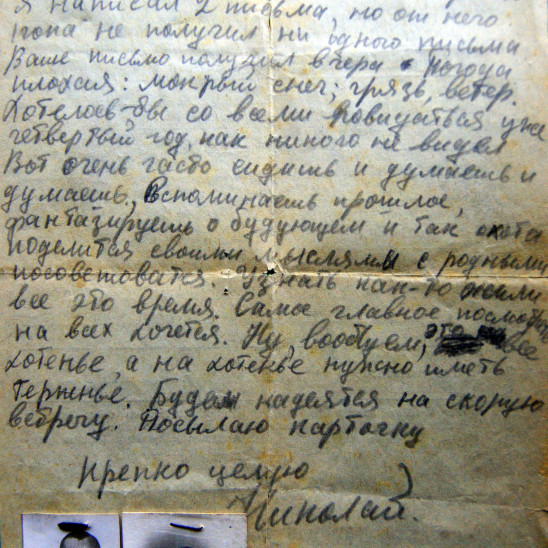 Я написал 2 письма, но от него
пока не получил ни одного письма
Ваше письмо получил вчера. Погода
плохая: мокрый снег, грязь, ветер.
Хотелось бы со всеми повидаться уже
четвертый год, как никого не видел
Вот очень часто сидишь и думаешь и
думаешь, вспоминаешь прошлое,
фантазируешь о будующем и так охота
поделится своими мыслями с родными
посоветоватся. Узнать как-то жили
все это время. Самое главное посмотреть
на всех хочется. Ну, вообщем, это все
хотенье, а на хотенье нужно иметь
терженье. Будем надеятся на скорую
встречу. Посылаю карточку
Крепко целую
Николай.